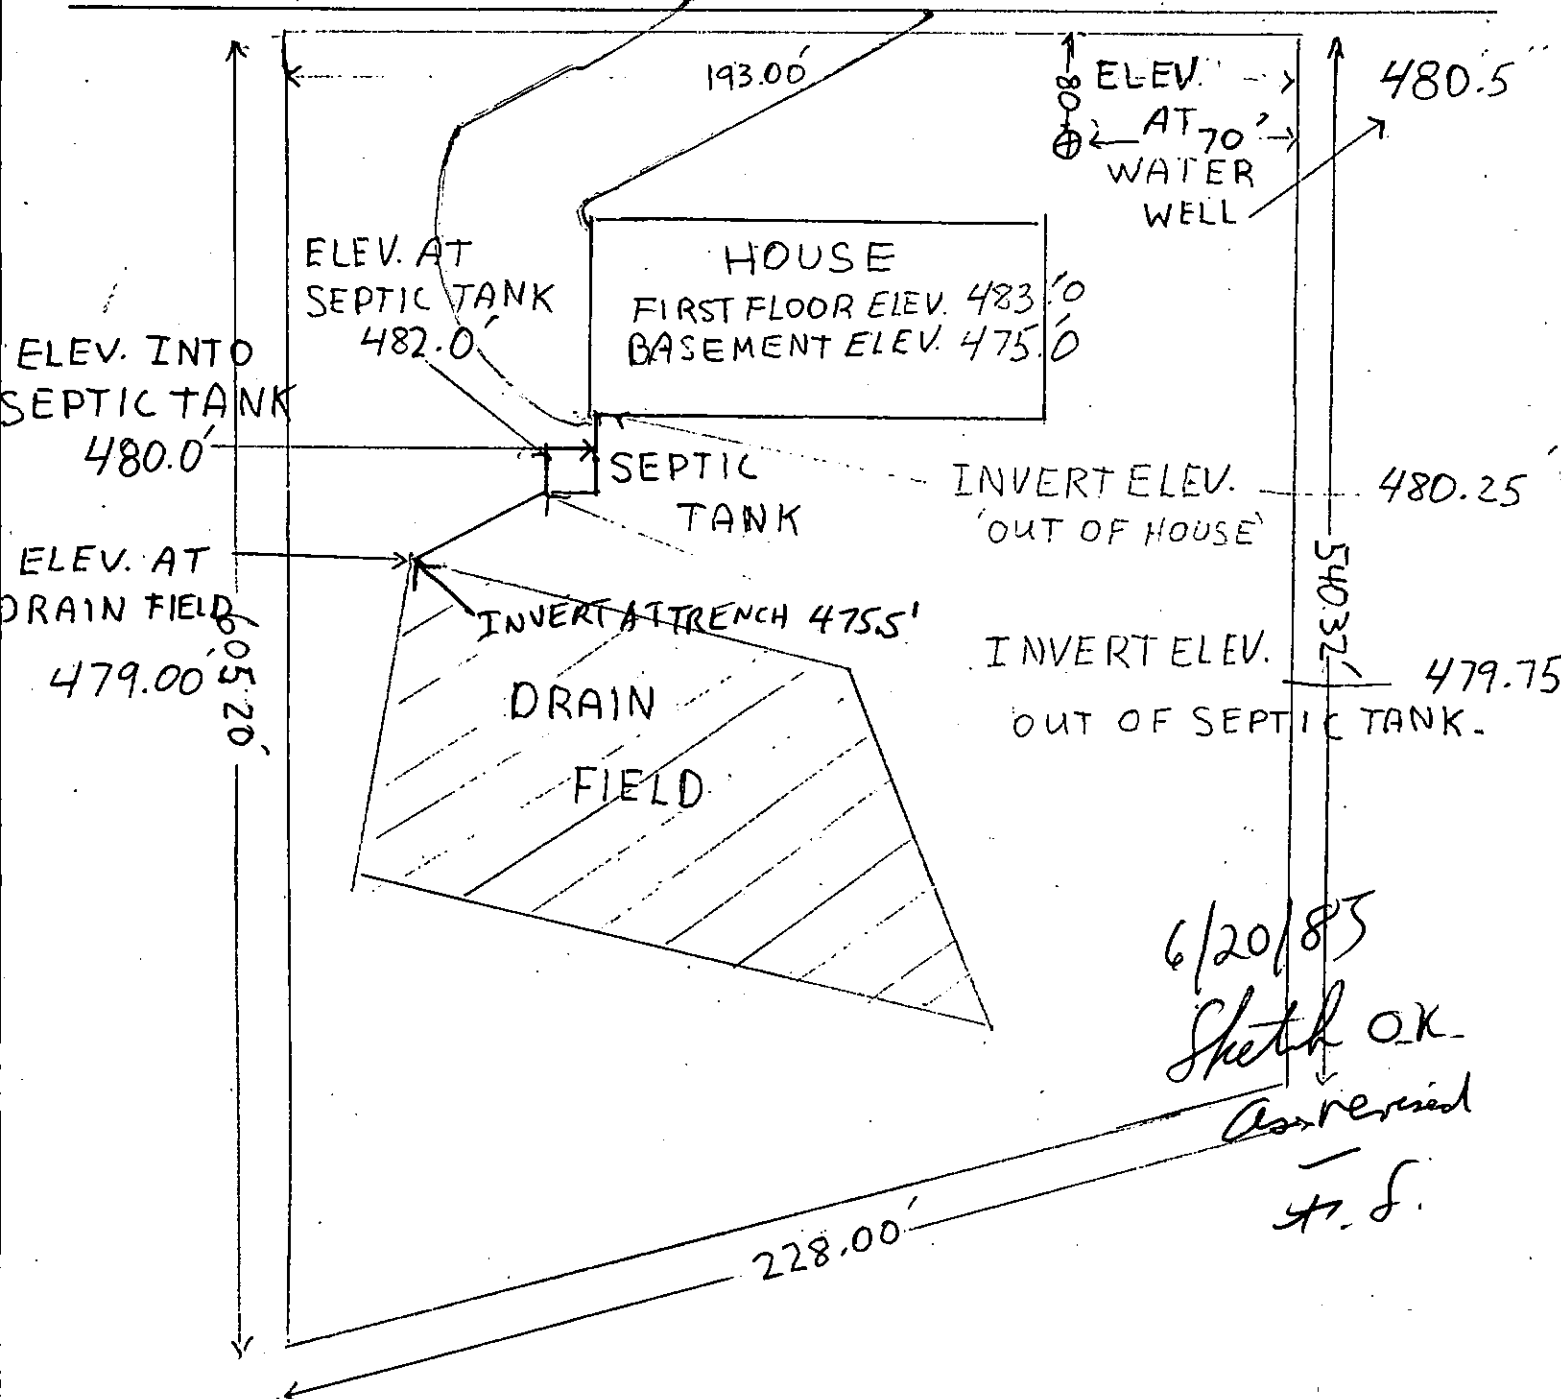 193.00'
80'
ELEV.
AT
70'
WATER
WELL
480.5'
ELEV. AT
SEPTIC TANK
482.0'
HOUSE
FIRST FLOOR ELEV. 483.'0
BASEMENT ELEV. 475.'0
ELEV. INTO
SEPTIC TANK
480.0'
SEPTIC
TANK
INVERT ELEV.
'OUT OF HOUSE'
480.25'
ELEV. AT
DRAIN FIELD
479.00'
605.20'
INVERT AT TRENCH 475.5'
540.32'
INVERT ELEV.
OUT OF SEPTIC TANK.
479.75
DRAIN
FIELD
6/20/85
Sketch O.K.
as revised
228.00'